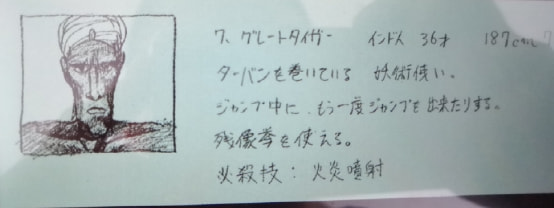 7、グレートタイガー インド人 36才 187cm 7
ターバンを巻いている 妖術使い。
ジャンプ中に、もう一度ジャンプを出来たりする。
残像拳を使える。
必殺技：火炎噴射